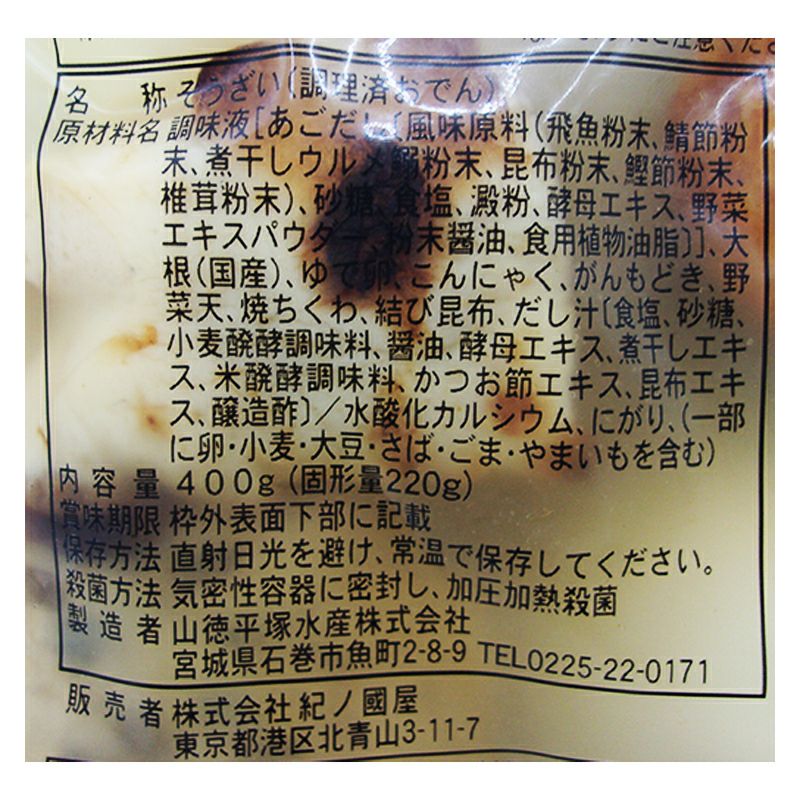 名称 そうざい(調理済おでん)
原材料名 調味液[あごだし〔風味原料(飛魚粉末、鯖節粉
末、煮干しウルメ鰯粉末、昆布粉末、鰹節粉末、
椎茸粉末)、砂糖、食塩、澱粉、酵母エキス、野菜
エキスパウダー、粉末醤油、食用植物油脂〕]、大
根(国産)、ゆで卵、こんにゃく、がんもどき、野
菜天、焼ちくわ、結び昆布、だし汁〔食塩、砂糖、
小麦醗酵調味料、醤油、酵母エキス、煮干しエキ
ス、米醗酵調味料、かつお節エキス、昆布エキ
ス、醸造酢〕/水酸化カルシウム、にがり、(一部
に卵・小麦・大豆・さば・ごま・やまいもを含む)
内容量 400g (固形量220g)
賞味期限 枠外表面下部に記載
保存方法 直射日光を避け、常温で保存してください。
殺菌方法 気密性容器に密封し、加圧加熱殺菌
製造者 山徳平塚水産株式会社
宮城県石巻市魚町2-8-9 TEL0225-22-0171
販売者 株式会社紀ノ國屋
東京都港区北青山3-11-7